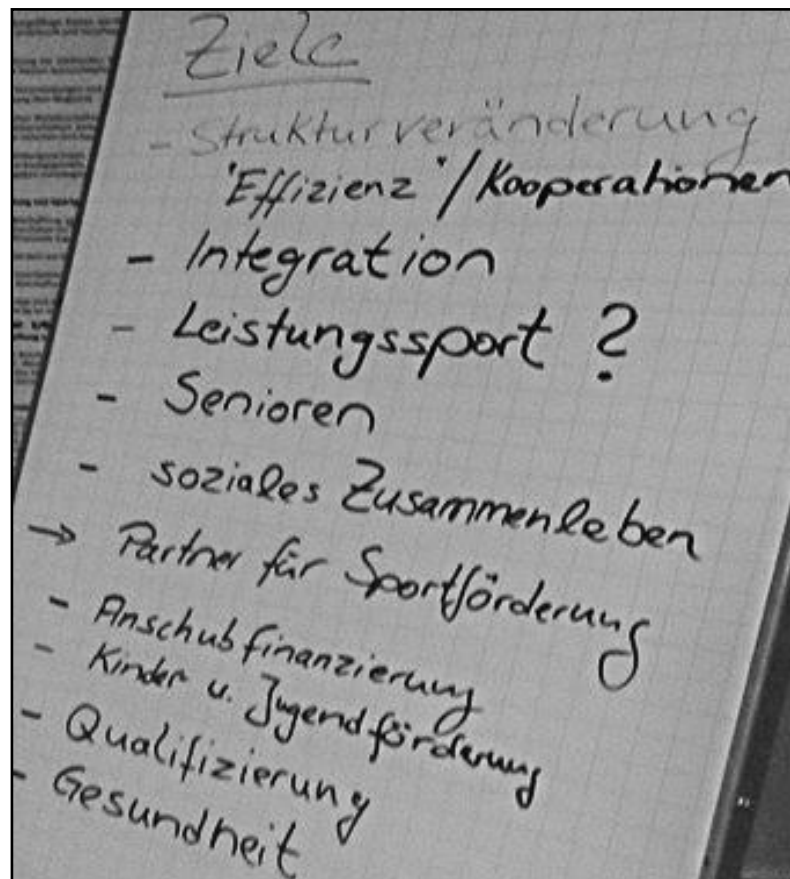 Ziele
- Strukturveränderung
'Effizienz'/Kooperationen
- Integration
- Leistungssport ?
- Senioren
- soziales Zusammenleben
→ Partner für Sportförderung
- Anschubfinanzierung
- Kinder u. Jugendförderung
- Qualifizierung
- Gesundheit